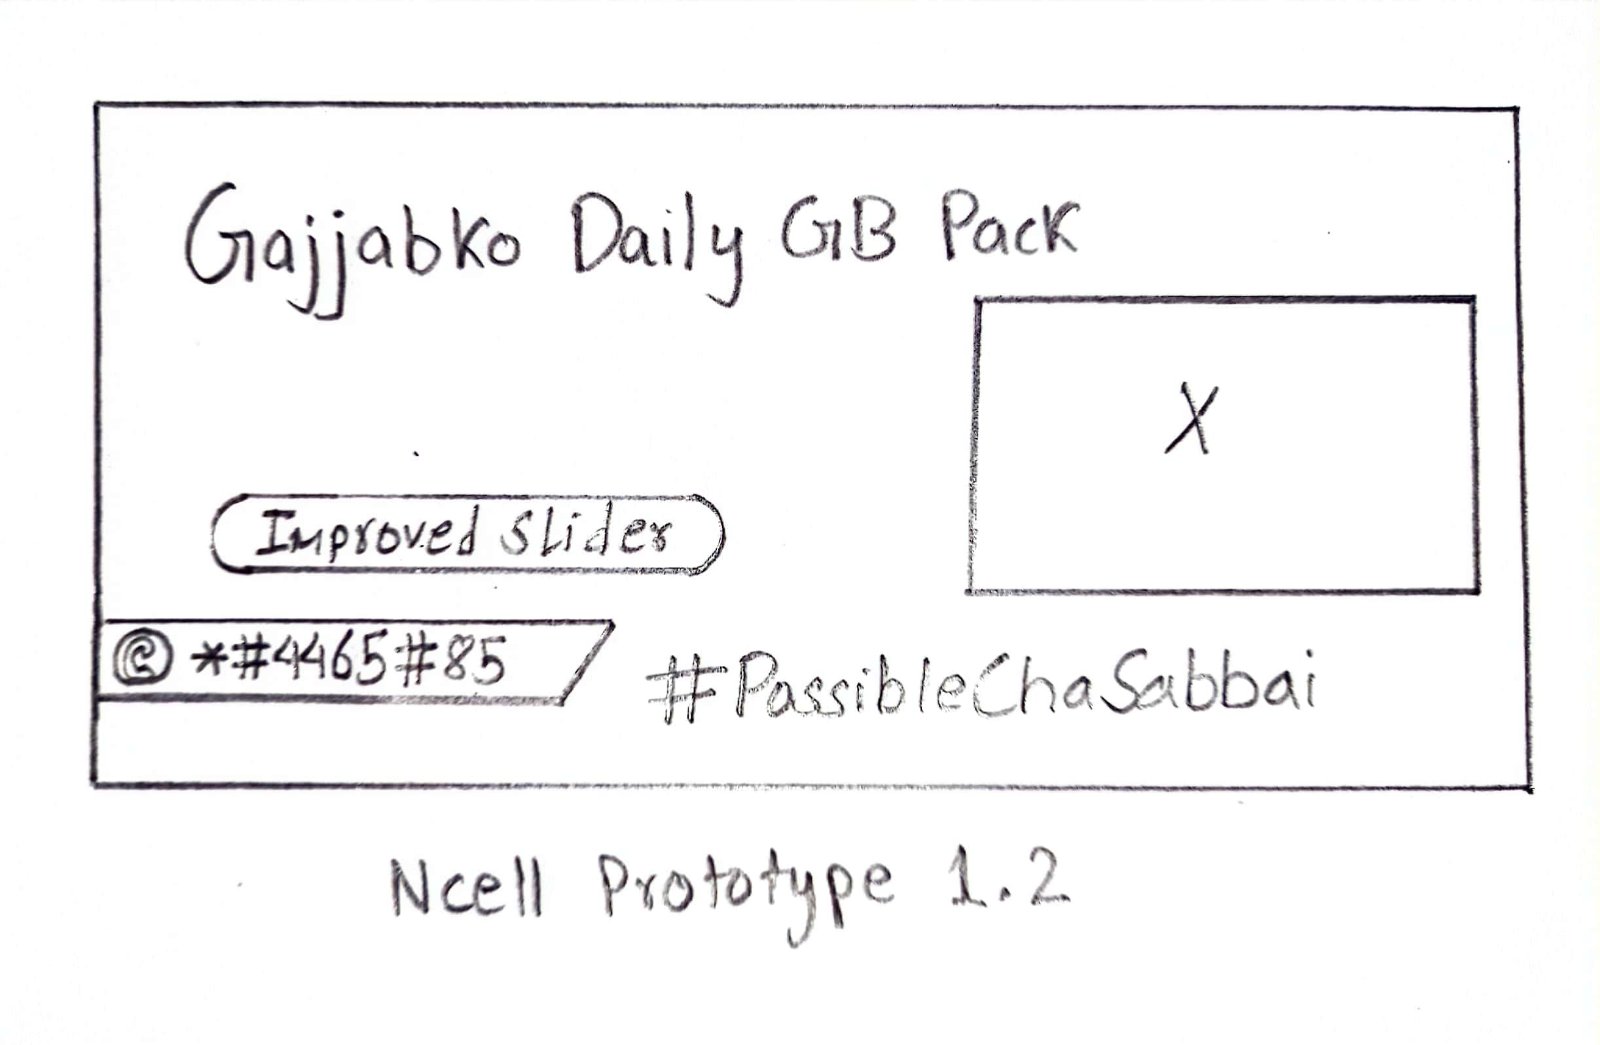 Gajjabko Daily GB Pack
X
Improved Slider
@ *#4465#85
#PassibleChaSabbai
Ncell Prototype 1.2